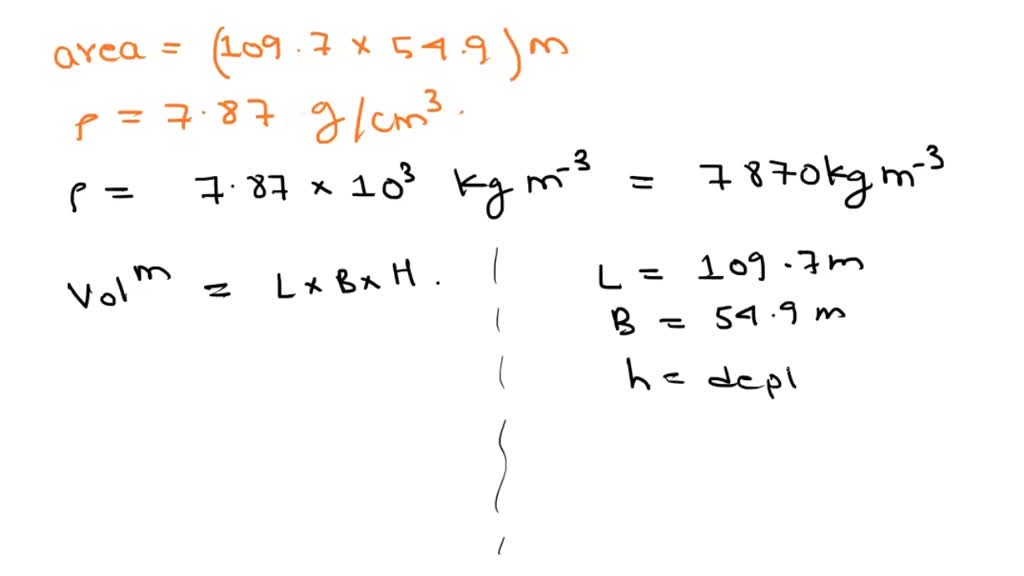 area = (109.7 × 54.9) m
ρ = 7.87 g/cm³.
ρ = 7.87 × 10³ kg m⁻³ = 7870 kg m⁻³
Volᵐ = L × B × H.
L = 109.7 m
B = 54.9 m
h = dept